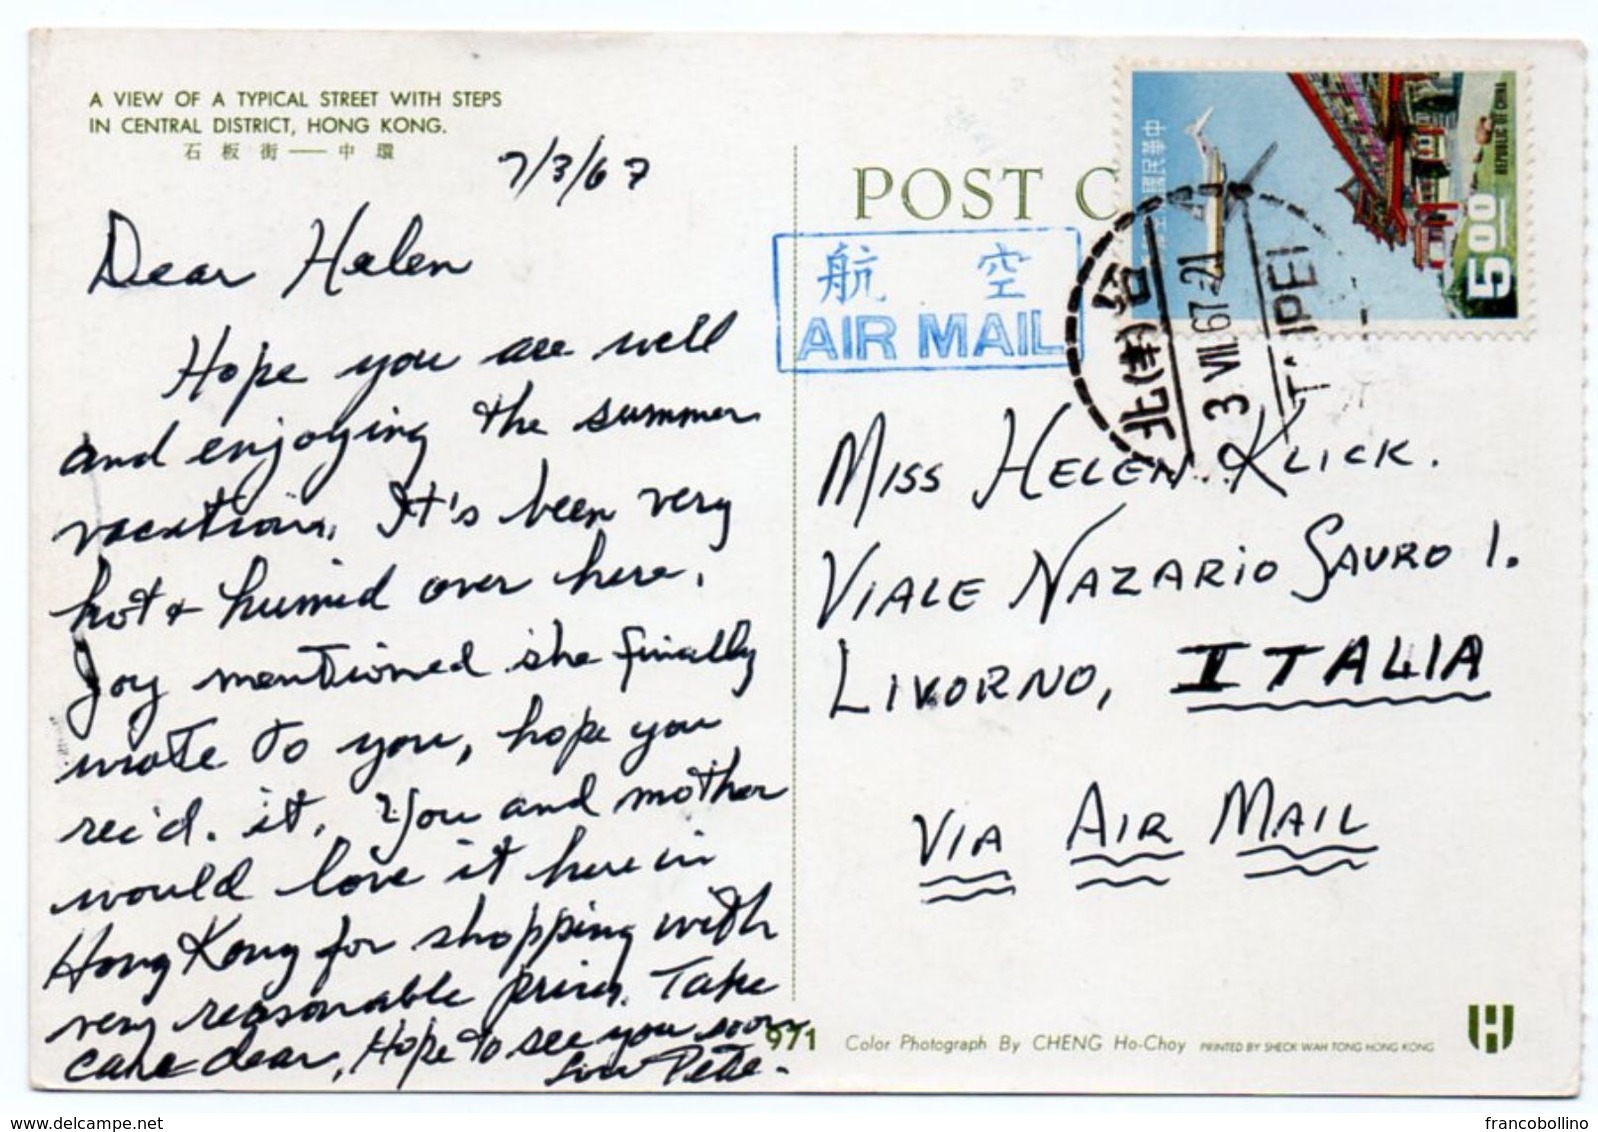 A VIEW OF A TYPICAL STREET WITH STEPS
IN CENTRAL DISTRICT, HONG KONG.
石板街——中環
7/3/67
Dear Helen
Hope you are well
and enjoying the summer
vacation. It's been very
hot & humid over here.
Joy mentioned she finally
wrote to you, hope you
rec'd. it. You and mother
would love it here in
Hong Kong for shopping with
very reasonable prices. Take
care dear, Hope to see you soon
Love Pete.
POST C
航空
AIR MAIL
中華民國
REPUBLIC OF CHINA
5.00
台北
3.VII.67.21
TAIPEI
MISS HELEN KLICK.
VIALE NAZARIO SAURO 1.
LIVORNO, ITALIA
VIA AIR MAIL
971
Color Photograph By CHENG Ho-Choy PRINTED BY SHECK WAH TONG HONG KONG
delcampe.net
francobollino